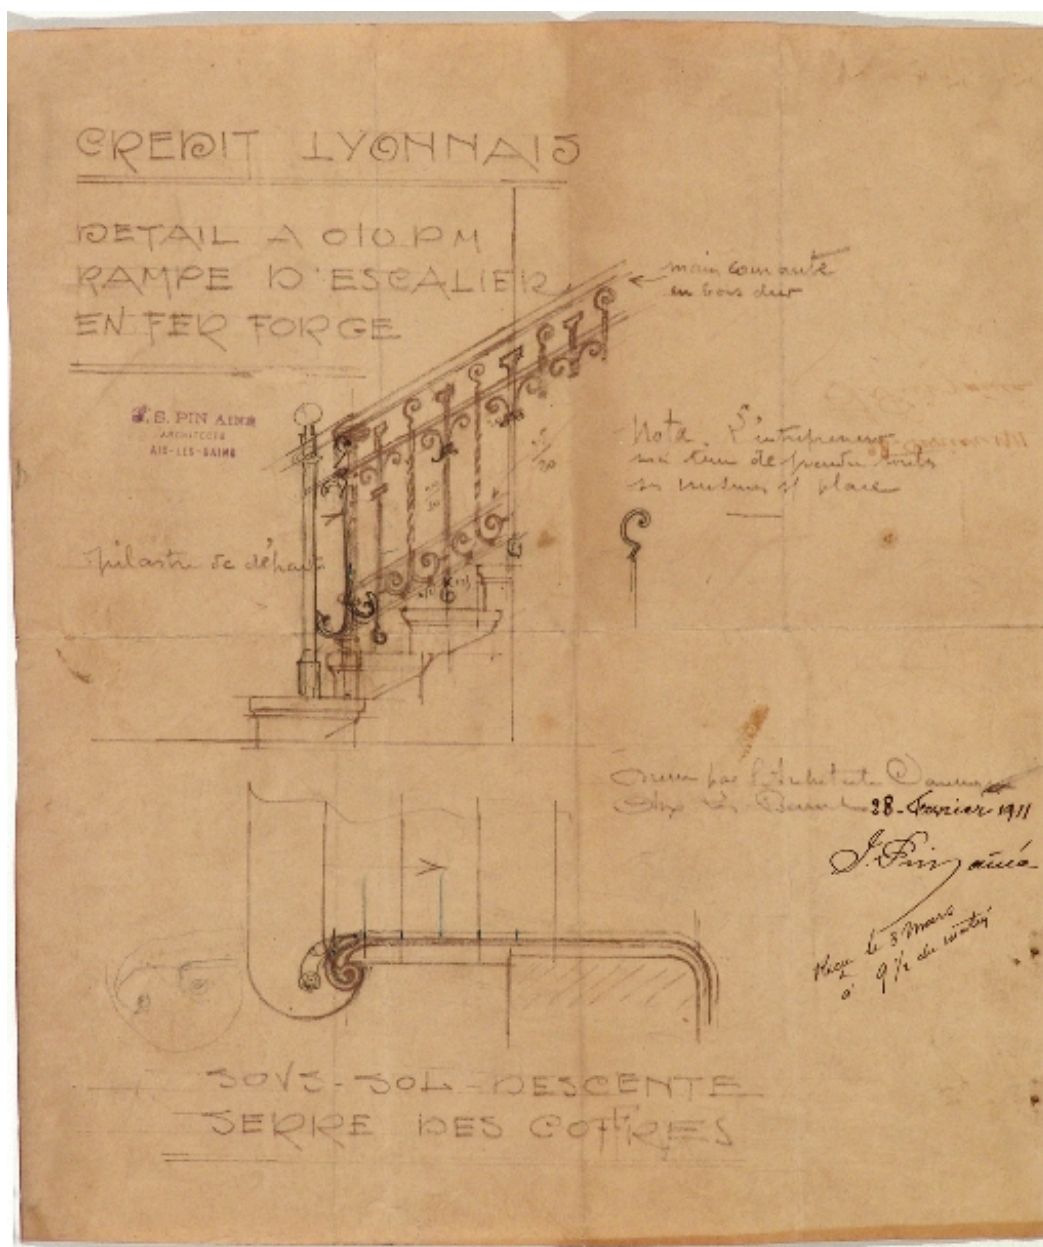 CREDIT LYONNAIS
DETAIL A 0,10 P M
RAMPE D'ESCALIER
EN FER FORGE
main courante
en bois dur
J. S. PIN AINÉ
ARCHITECTE
AIX-LES-BAINS
Nota. L'entrepreneur
tenu de prendre toutes
ses mesures s/ place
pilastre de départ
par l'Architecte
28 - Fevrier 1911
J. Pin ainé
Reçu le 3 Mars
à 9 1/2 du matin
SOUS-SOL-DESCENTE
SERRE DES COFFRES